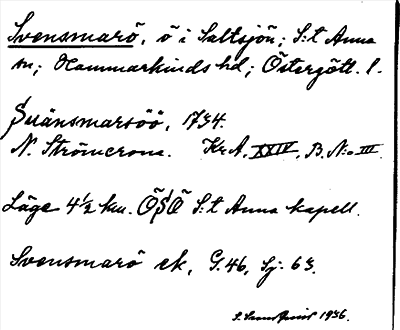 Svensmarö, ö i Saltsjön; S:t Anna
sn; Hammarkinds hd; Östergötl. l.
Suänsmarsöö, 1734.
N. Strömcrona. Kr.A, XXIV, B. N:o III.
Läge 4½ km. ÖSÖ S:t Anna kapell.
Svensmarö ek, G. 46, Sj. 63.
1936.